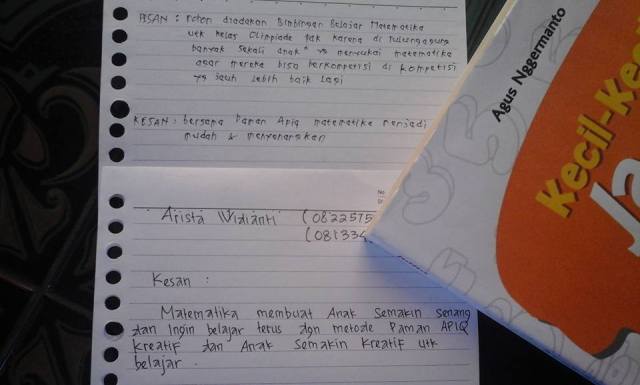 PESAN : Mohon diadakan Bimbingan Belajar Matematika
utk kelas Olimpiade Pak karena di Tulungagung
banyak sekali anak² yg menyukai matematika
agar mereka bisa berkompetisi di kompetisi
yg jauh lebih baik lagi
KESAN : bersama Paman Apiq matematika menjadi
mudah & menyenangkan
No
Arista Widianti (0822575
(081334
Kesan :
Matematika membuat Anak Semakin senang
dan Ingin belajar terus dgn metode Paman APIQ
Kreatif dan Anak Semakin Kreatif utk
belajar .
Agus Nggermanto
Kecil-Ke
Ja